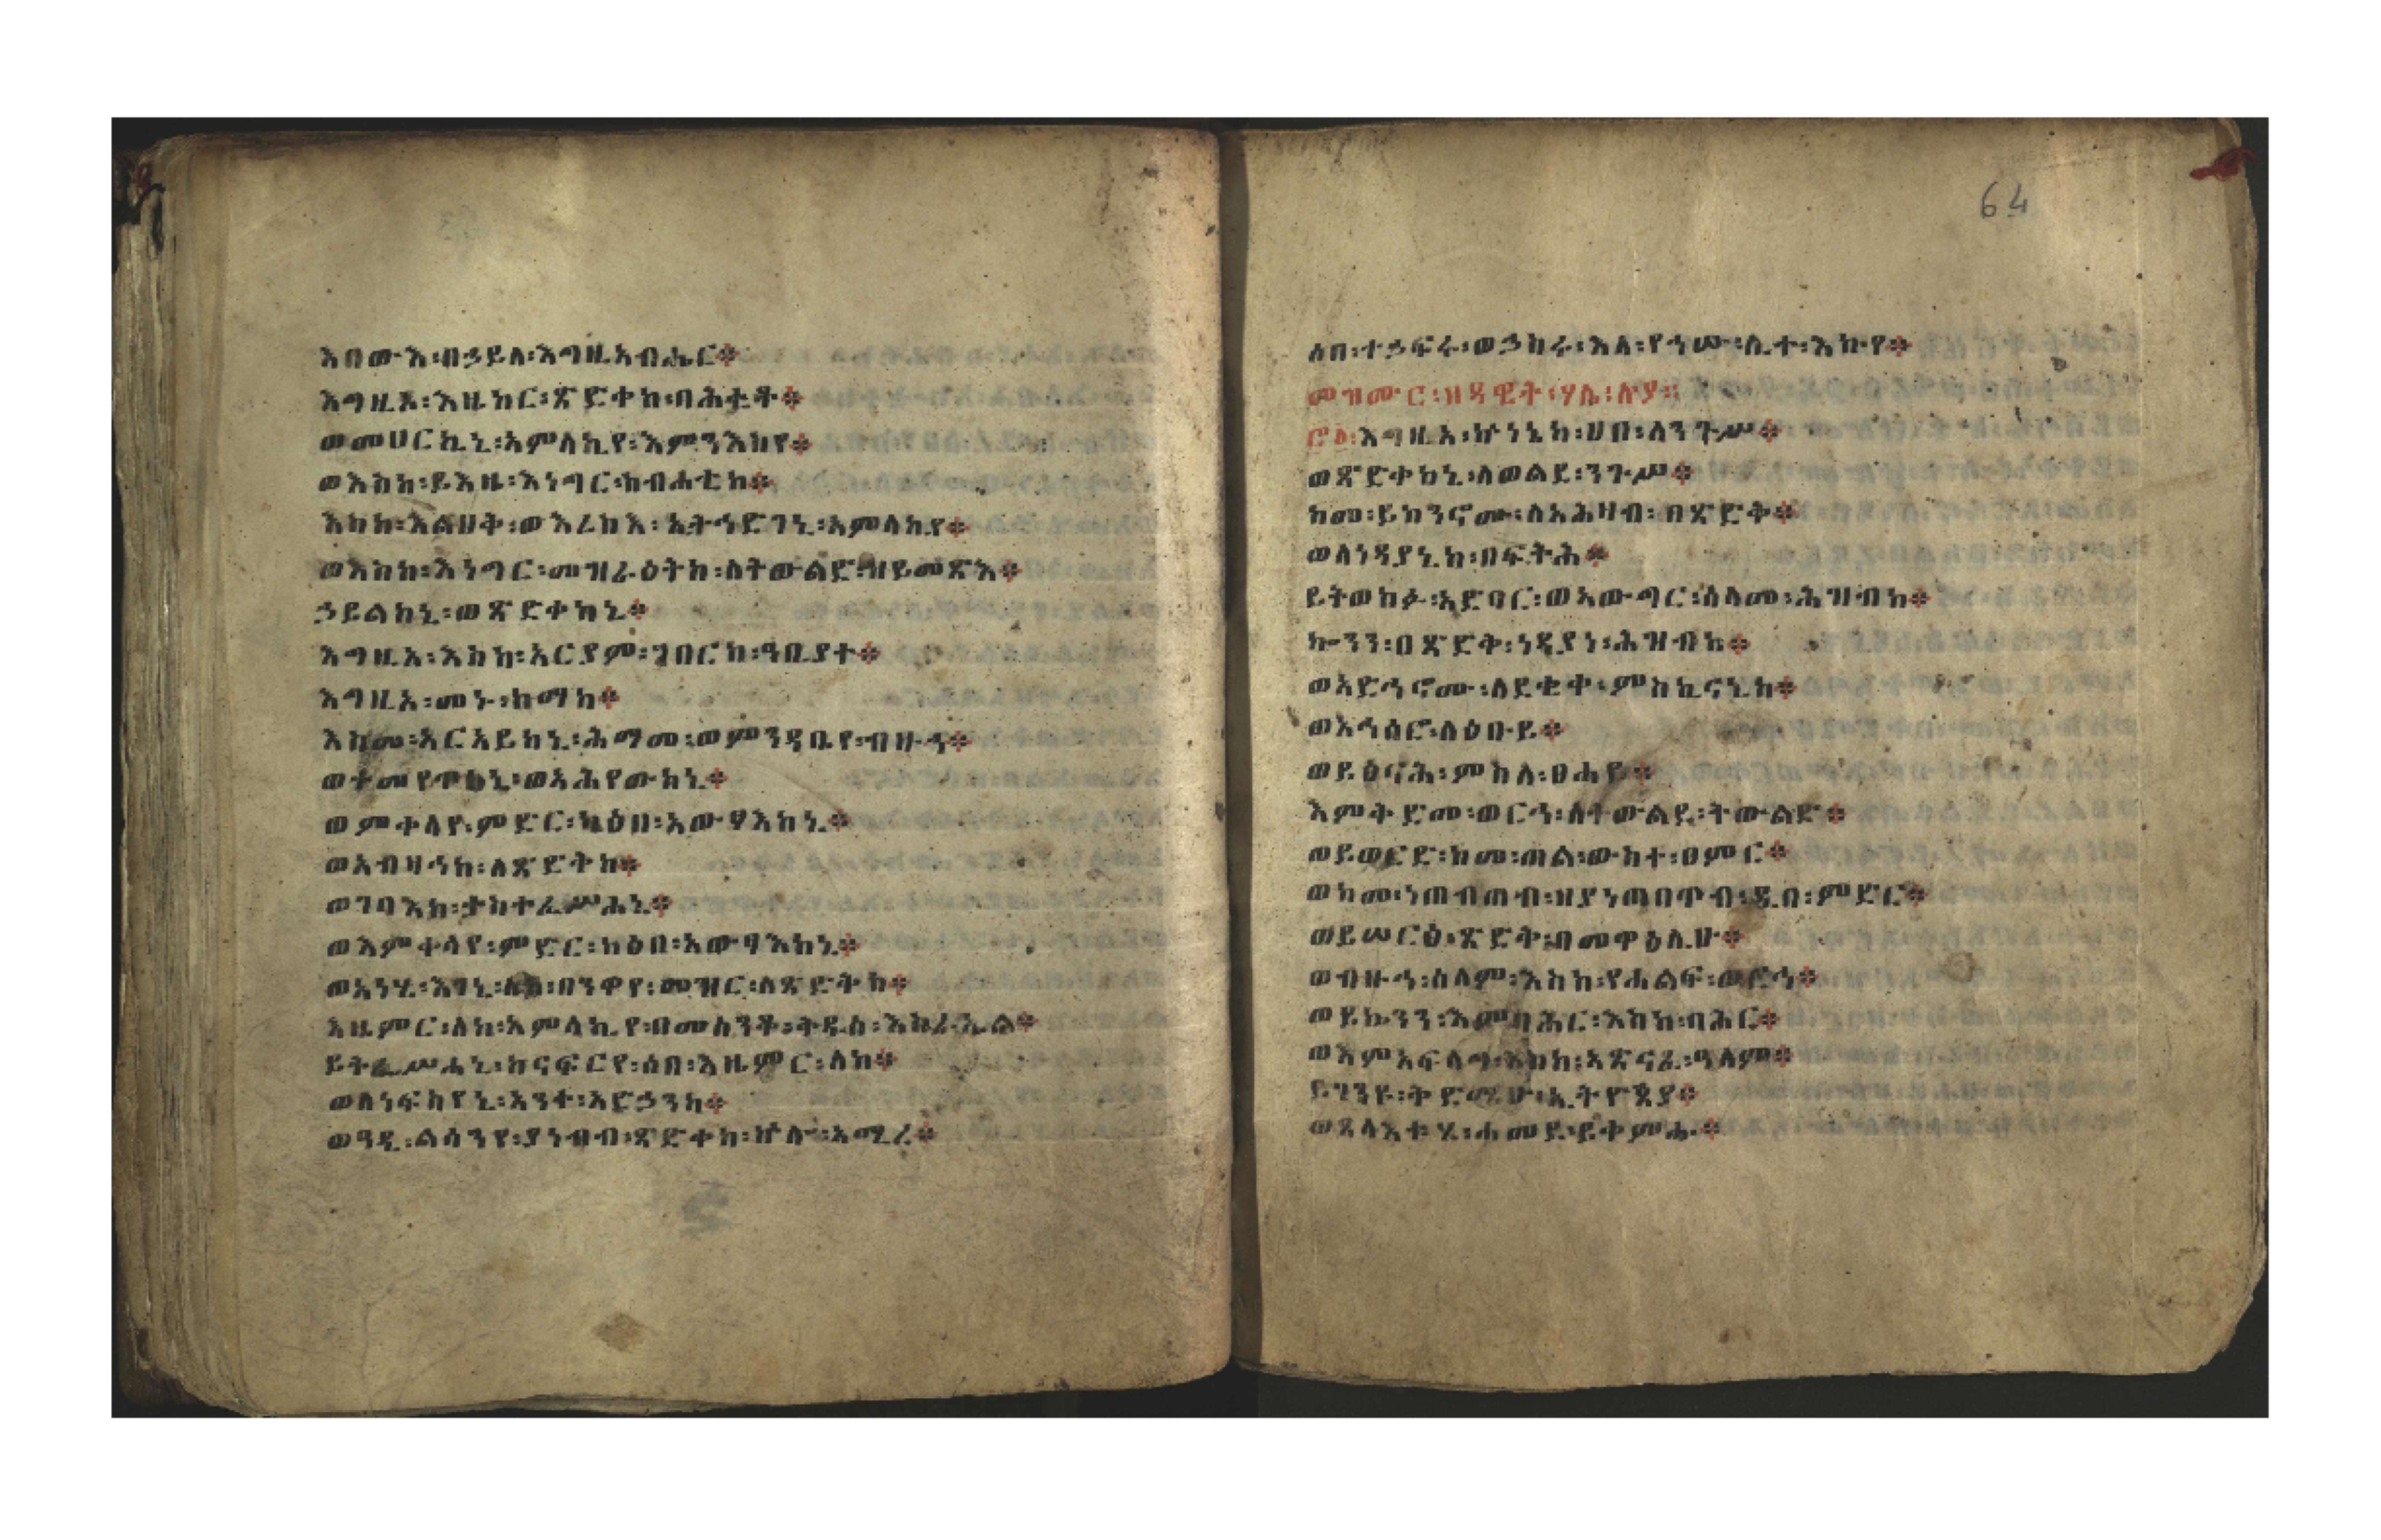 እበውእ፡በኃይለ፡እግዚአብሔር።
እግዚአ፡እዜከር፡ጽድቀከ፡ባሕቲት።
ወመሀርከኒ፡አምላኪየ፡እምንእስየ።
ወእስከ፡ይእዜ፡እነግር፡ስብሐቲከ።
እስከ፡እልህቅ፡ወእረስእ፡ኢትኅድገኒ፡አምላኪየ።
ወእስከ፡እነግር፡መዝራዕትከ፡ለትውልድ፡ዝይመጽእ።
ኃይልከኒ፡ወጽድቀከኒ።
እግዚአ፡እስከ፡አርያም፡ገበርከ፡ዓቢያተ።
እግዚአ፡መኑ፡ከማከ።
እስመ፡አርአይከኒ፡ሕማመ፡ወምንዳቤየ፡ብዙኅ።
ወተመየጥከኒ፡ወአሕየውከኒ።
ወምቀላየ፡ምድር፡ካዕበ፡አውፃእከኒ።
ወአብዛኅከ፡ለጽድቅከ።
ወገባእከ፡ታስተፌሥሐኒ።
ወእምቀላየ፡ምድር፡ካዕበ፡አውፃእከኒ።
ወአነሂ፡እገኒ፡ለከ፡በንዋየ፡መዝር፡ለጽድቅከ።
እዜምር፡ለከ፡አምላኪየ፡በመሰንቆ፡ቅዱሰ፡እስራኤል።
ይትፌሥሓኒ፡ከናፍርየ፡ሰበ፡እዜምር፡ለከ።
ወለነፍስየኒ፡አንተ፡አድኃንከ።
ወዓዲ፡ልሳንየ፡ያነብብ፡ጽድቀከ፡ኵሎ፡አሚረ።
64
ሰበ፡ተኃፍሩ፡ወኃስሩ፡እለ፡የኅሡ፡ሊተ፡እኩየ።
መዝሙር፡ዘዳዊት፡ሃሌ፡ሉያ።
እግዚአ፡ኵነኔከ፡ሀበ፡ለንጉሥ።
ወጽድቀከኒ፡ለወልደ፡ንጉሥ።
ከመ፡ይኰንኖሙ፡ለአሕዛብ፡በጽድቅ።
ወለነዳያኒከ፡በፍትሕ።
ይትወከፉ፡አድባር፡ወአውግር፡ሰላመ፡ሕዝብከ።
ኰንን፡በጽድቅ፡ነዳያነ፡ሕዝብከ።
ወአድኅኖሙ፡ለደቂቀ፡ምስኪናኒከ።
ወአኅስሮ፡ለዕቡይ።
ወይዕናሕ፡ምስለ፡ፀሐይ።
እምቅድመ፡ወርኅ፡ለትውልደ፡ትውልድ።
ወይወርድ፡ከመ፡ጠል፡ውስተ፡ፀምር።
ወከመ፡ነጠብጠብ፡ዘያነጠበጥብ፡ዲበ፡ምድር።
ወይሠርፅ፡ጽድቅ፡በመዋዕሊሁ።
ወብዙኅ፡ሰላም፡እስከ፡የሐልፍ፡ወርኅ።
ወይኴንን፡እምባሕር፡እስከ፡ባሕር።
ወእምአፍላግ፡እስከ፡አጽናፈ፡ዓለም።
ይገንዩ፡ቅድሜሁ፡ኢትዮጵያ።
ወጸላእቱሂ፡ሐመደ፡ይቀምሑ።